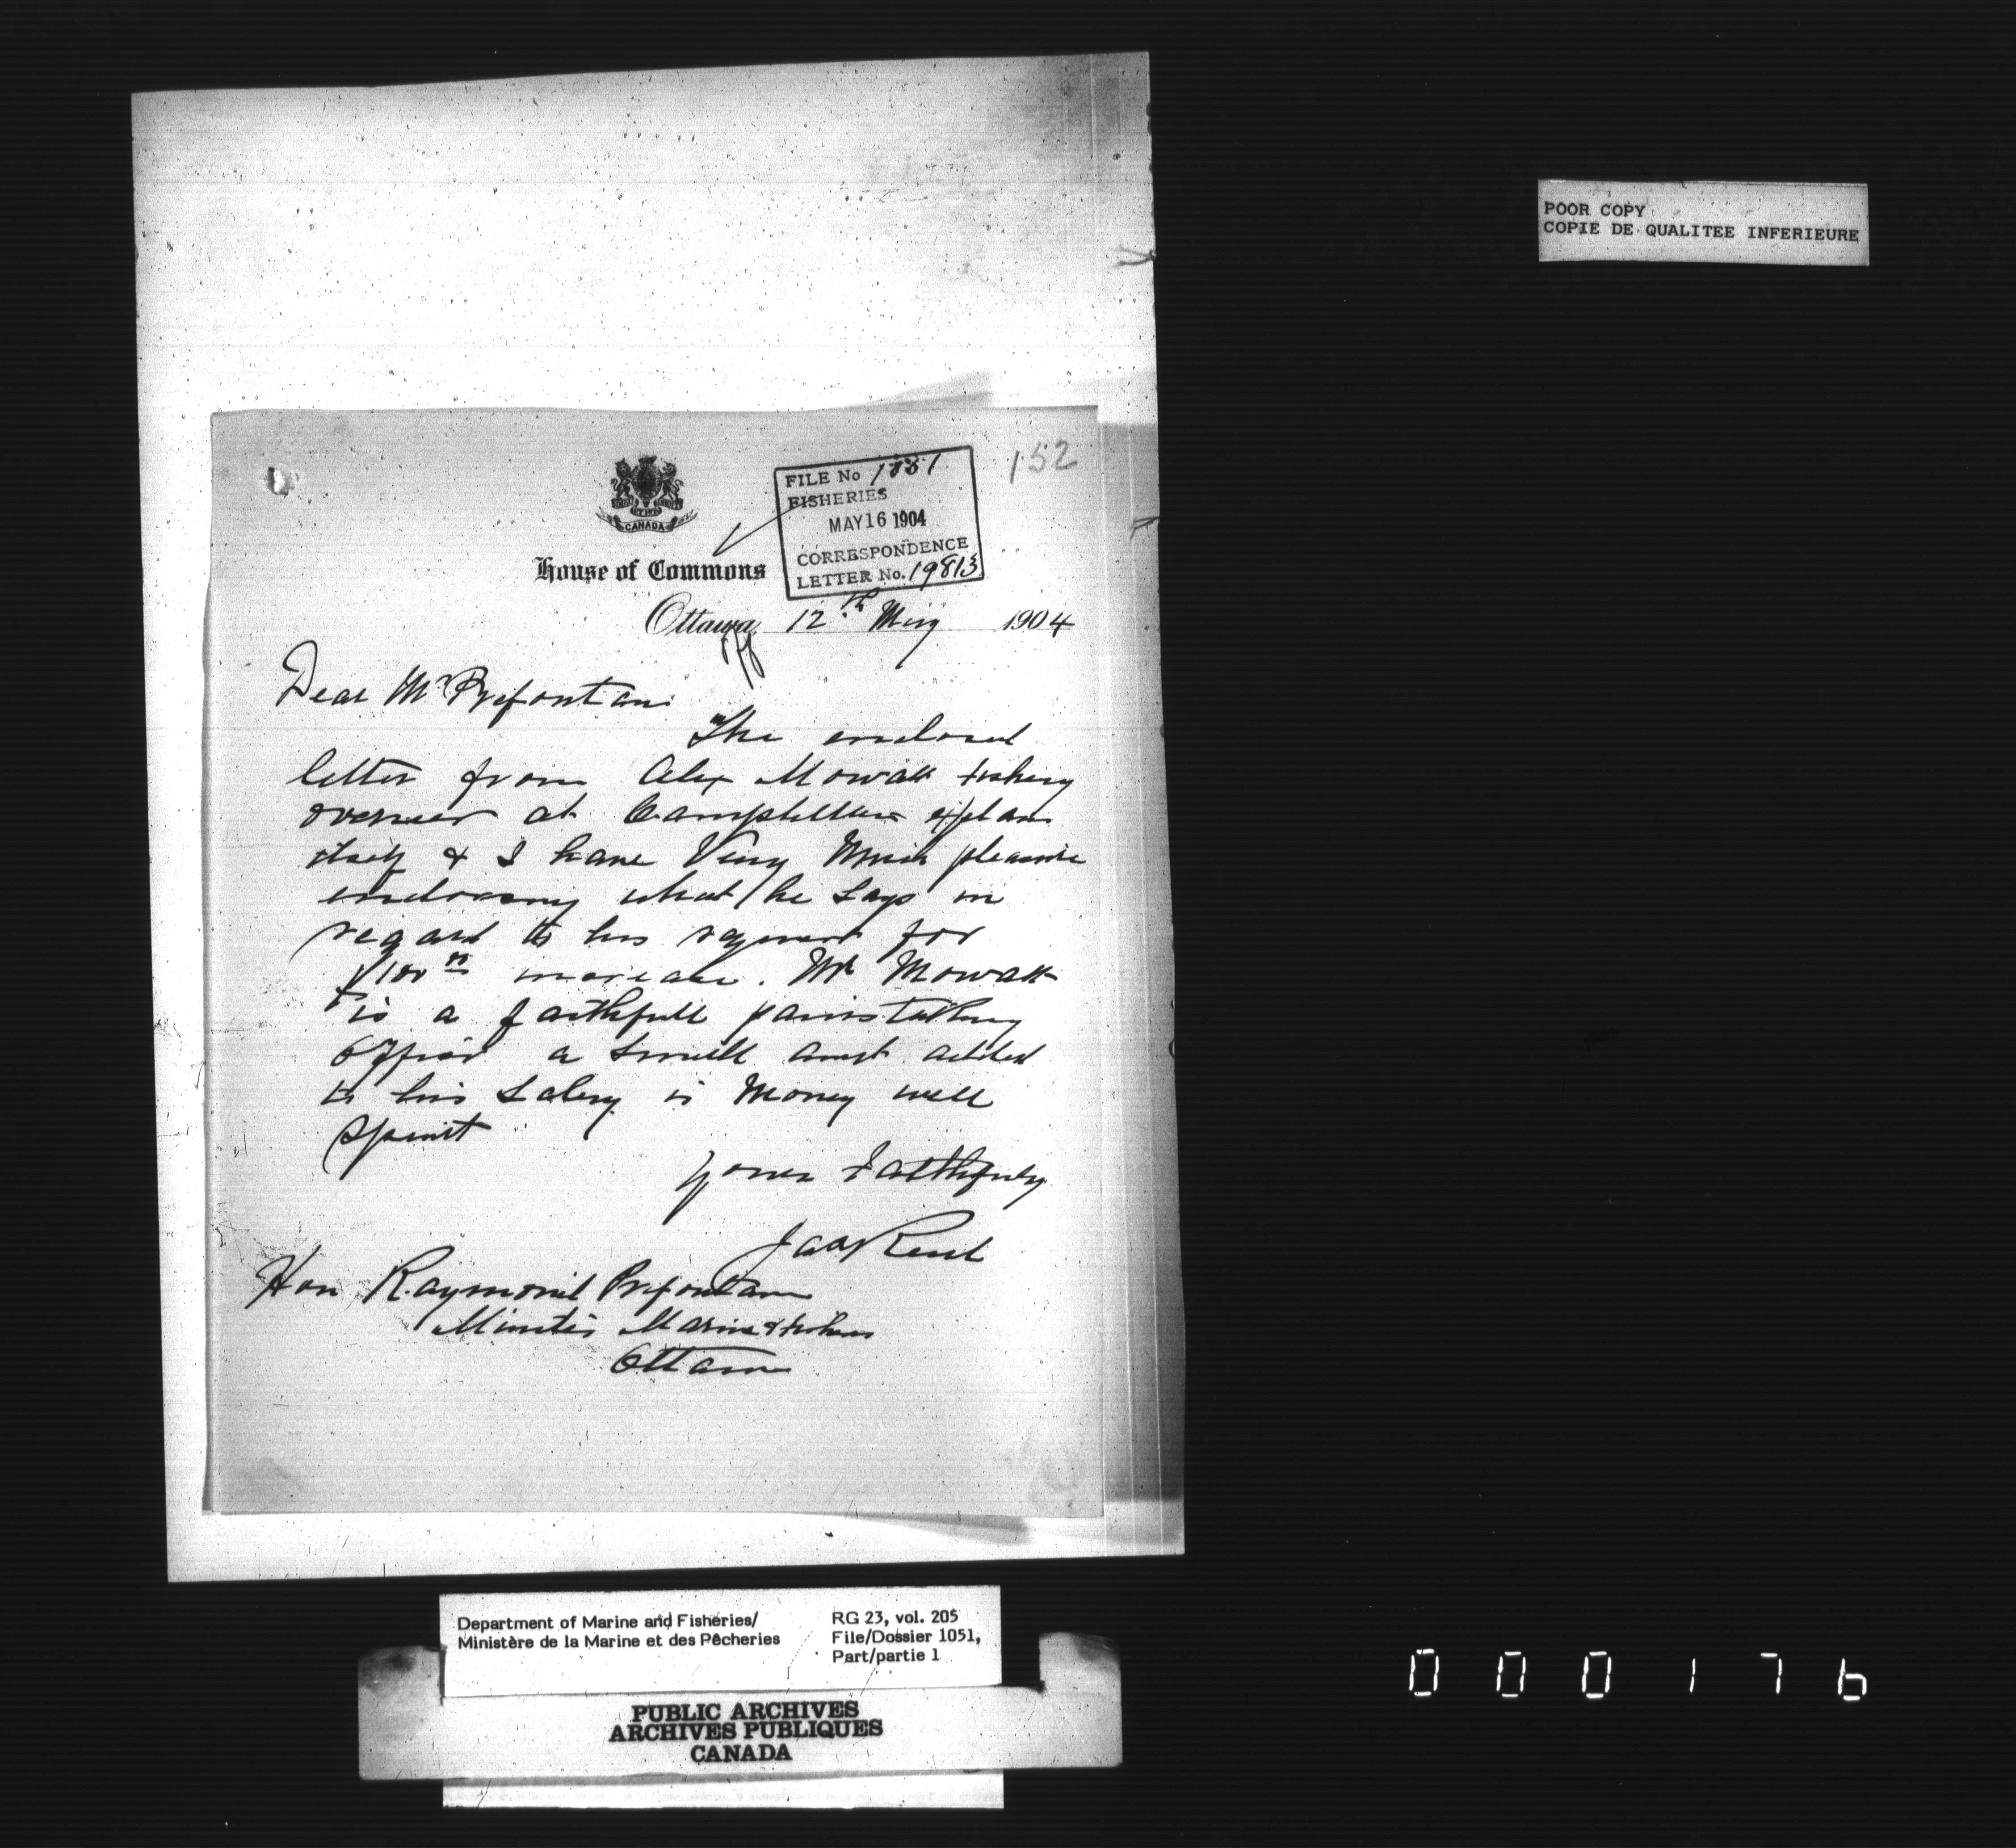 POOR COPY
COPIE DE QUALITEE INFERIEURE
152
CANADA
FILE No 1051
FISHERIES
MAY 16 1904
CORRESPONDENCE
LETTER No. 19813
House of Commons
Ottawa, 12th May 1904
Dear Mr Prefontain
The enclosed
letter from Alex Mowatt fishery
overseer at Campbellton explans
itself & I have Very Much pleasure
endorsing what he says in
regard to his request for
$100 increase. Mr Mowatt
is a faithfull painstaking
Officer a small amt added
to his Salery is Money well
spent
yours Faithfuly
Jas Reid
Hon Raymond Prefontain
Minister Marine & Fisheries
Ottawa
Department of Marine and Fisheries/
Ministère de la Marine et des Pêcheries
RG 23, vol. 205
File/Dossier 1051,
Part/partie 1
PUBLIC ARCHIVES
ARCHIVES PUBLIQUES
CANADA
000176